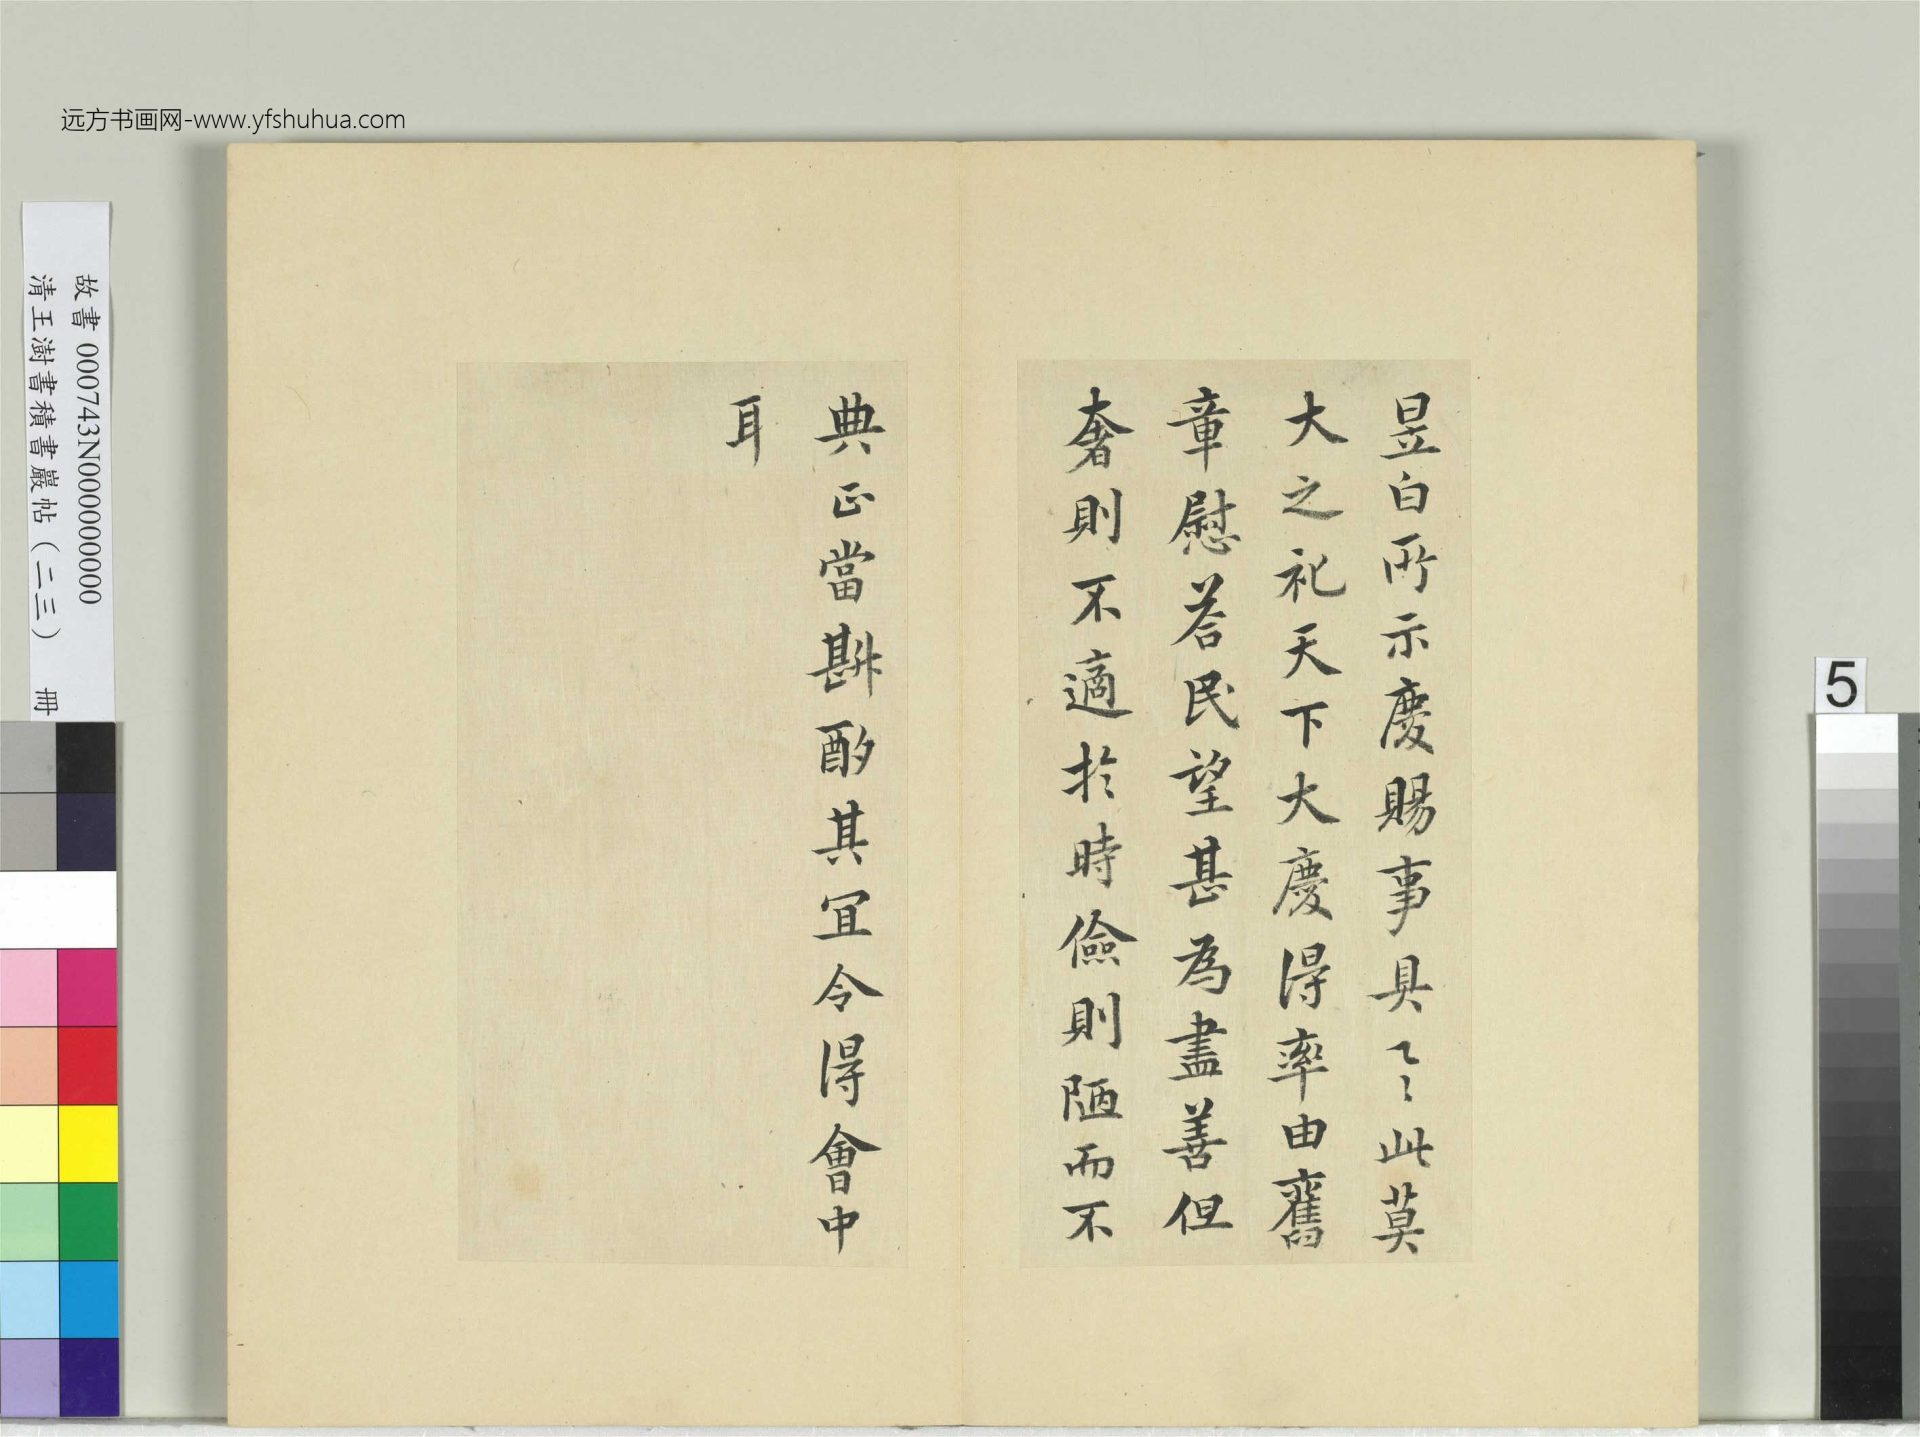 远方书画网-www.yfshuhua.com
故書 000743N000000000
清王澍書積書巖帖（二三） 冊
5
昱白所示慶賜事具〻此莫
大之祀天下大慶得率由舊
章慰荅民望甚為盡善但
奢則不適於時儉則陋而不
典正當斟酌其冝令得會中
耳